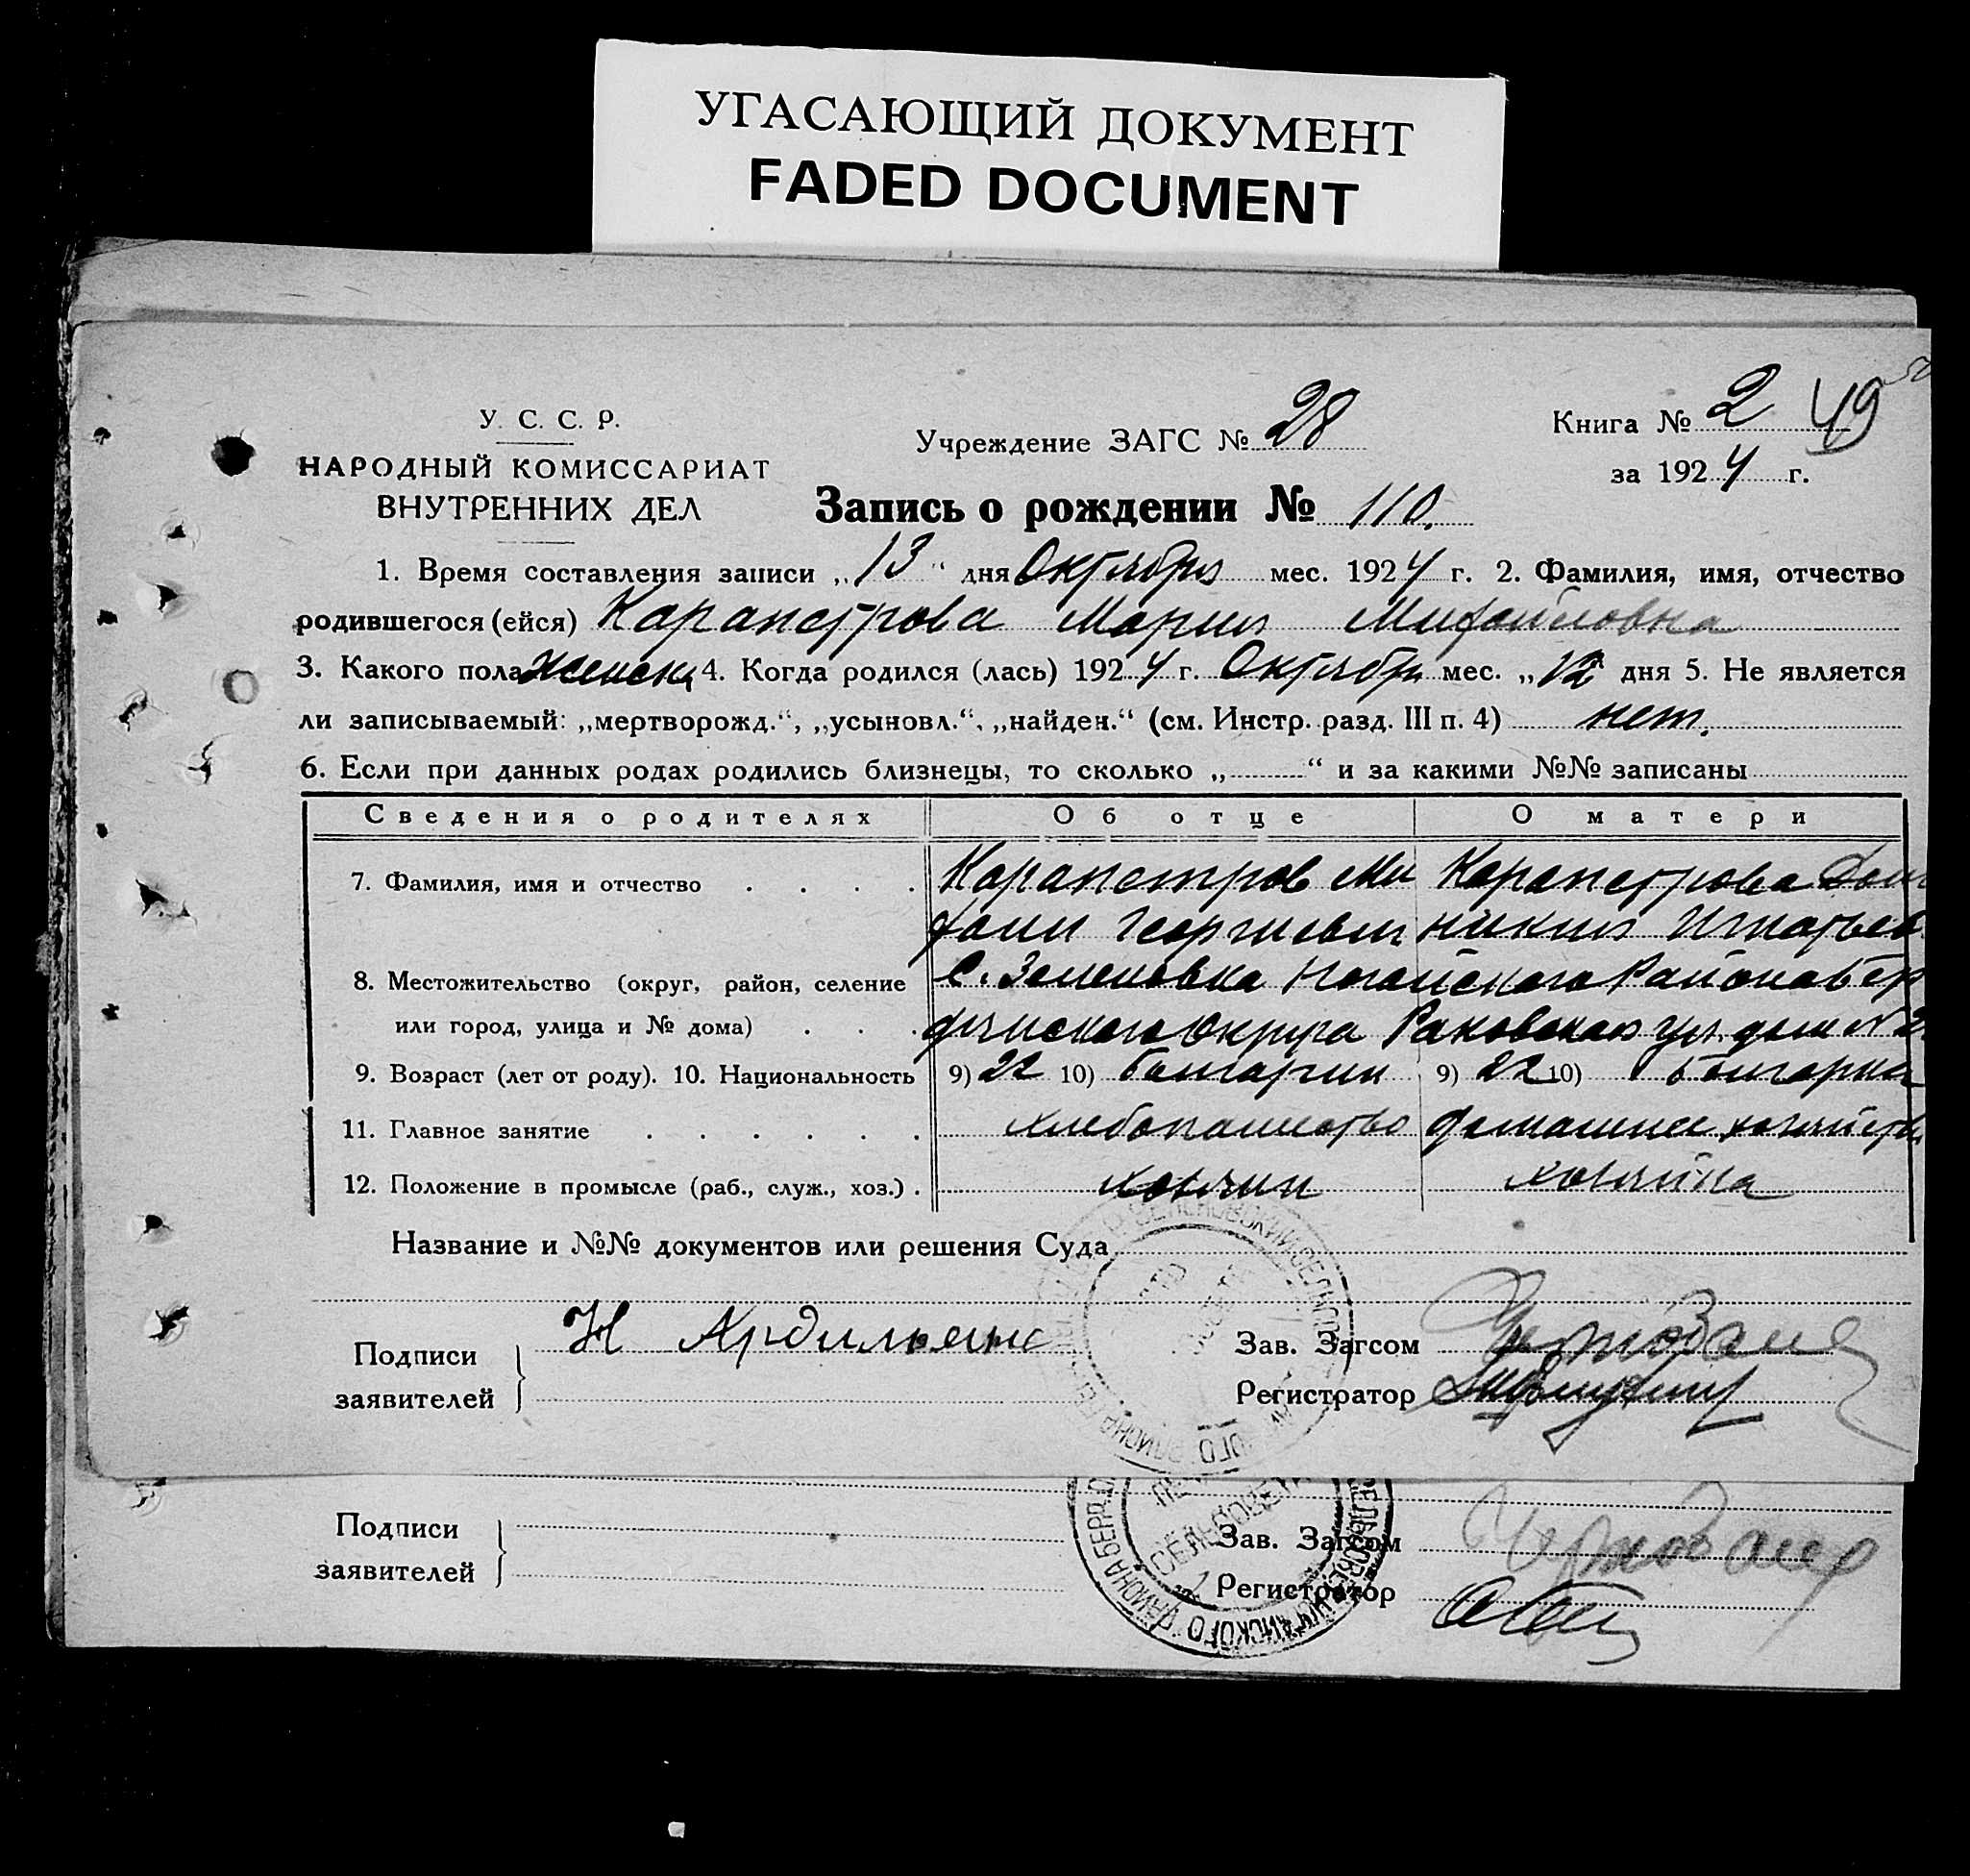 УГАСАЮЩИЙ ДОКУМЕНТ
FADED DOCUMENT
У. С. С. Р.
НАРОДНЫЙ КОМИССАРИАТ
ВНУТРЕННИХ ДЕЛ
Учреждение ЗАГС № 28
Книга № 2 49
за 1924 г.
Запись о рождении № 110.
1. Время составления записи „13“ дня Октября мес. 1924 г. 2. Фамилия, имя, отчество
родившегося (ейся) Карапетрова Мария Михайловна
3. Какого пола женск, 4. Когда родился (лась) 1924 г. Октября мес. „12 дня 5. Не является
ли записываемый: „мертворожд.“, „усыновл.“, „найден.“ (см. Инстр. разд. III п. 4) нет.
6. Если при данных родах родились близнецы, то сколько „ “ и за какими №№ записаны
Сведения о родителях Об отце О матери
7. Фамилия, имя и отчество Карапетров Ми Карапетрова Дом
хаил Георгиевич никия Игнатьев
8. Местожительство (округ, район, селение с. Зеленовка Ногайского Района Бер
или город, улица и № дома) дянского Округа Раковская ул. дом № 2
9. Возраст (лет от роду). 10. Национальность 9) 22 10) болгарин 9) 22 10) болгарка
11. Главное занятие хлебопашество домашнее хозяйств
12. Положение в промысле (раб., служ., хоз.) хозяин хозяйка
Название и №№ документов или решения Суда
Подписи
заявителей
Н
Зав. Загсом
Регистратор
Подписи
заявителей
Зав. Загсом
Регистратор